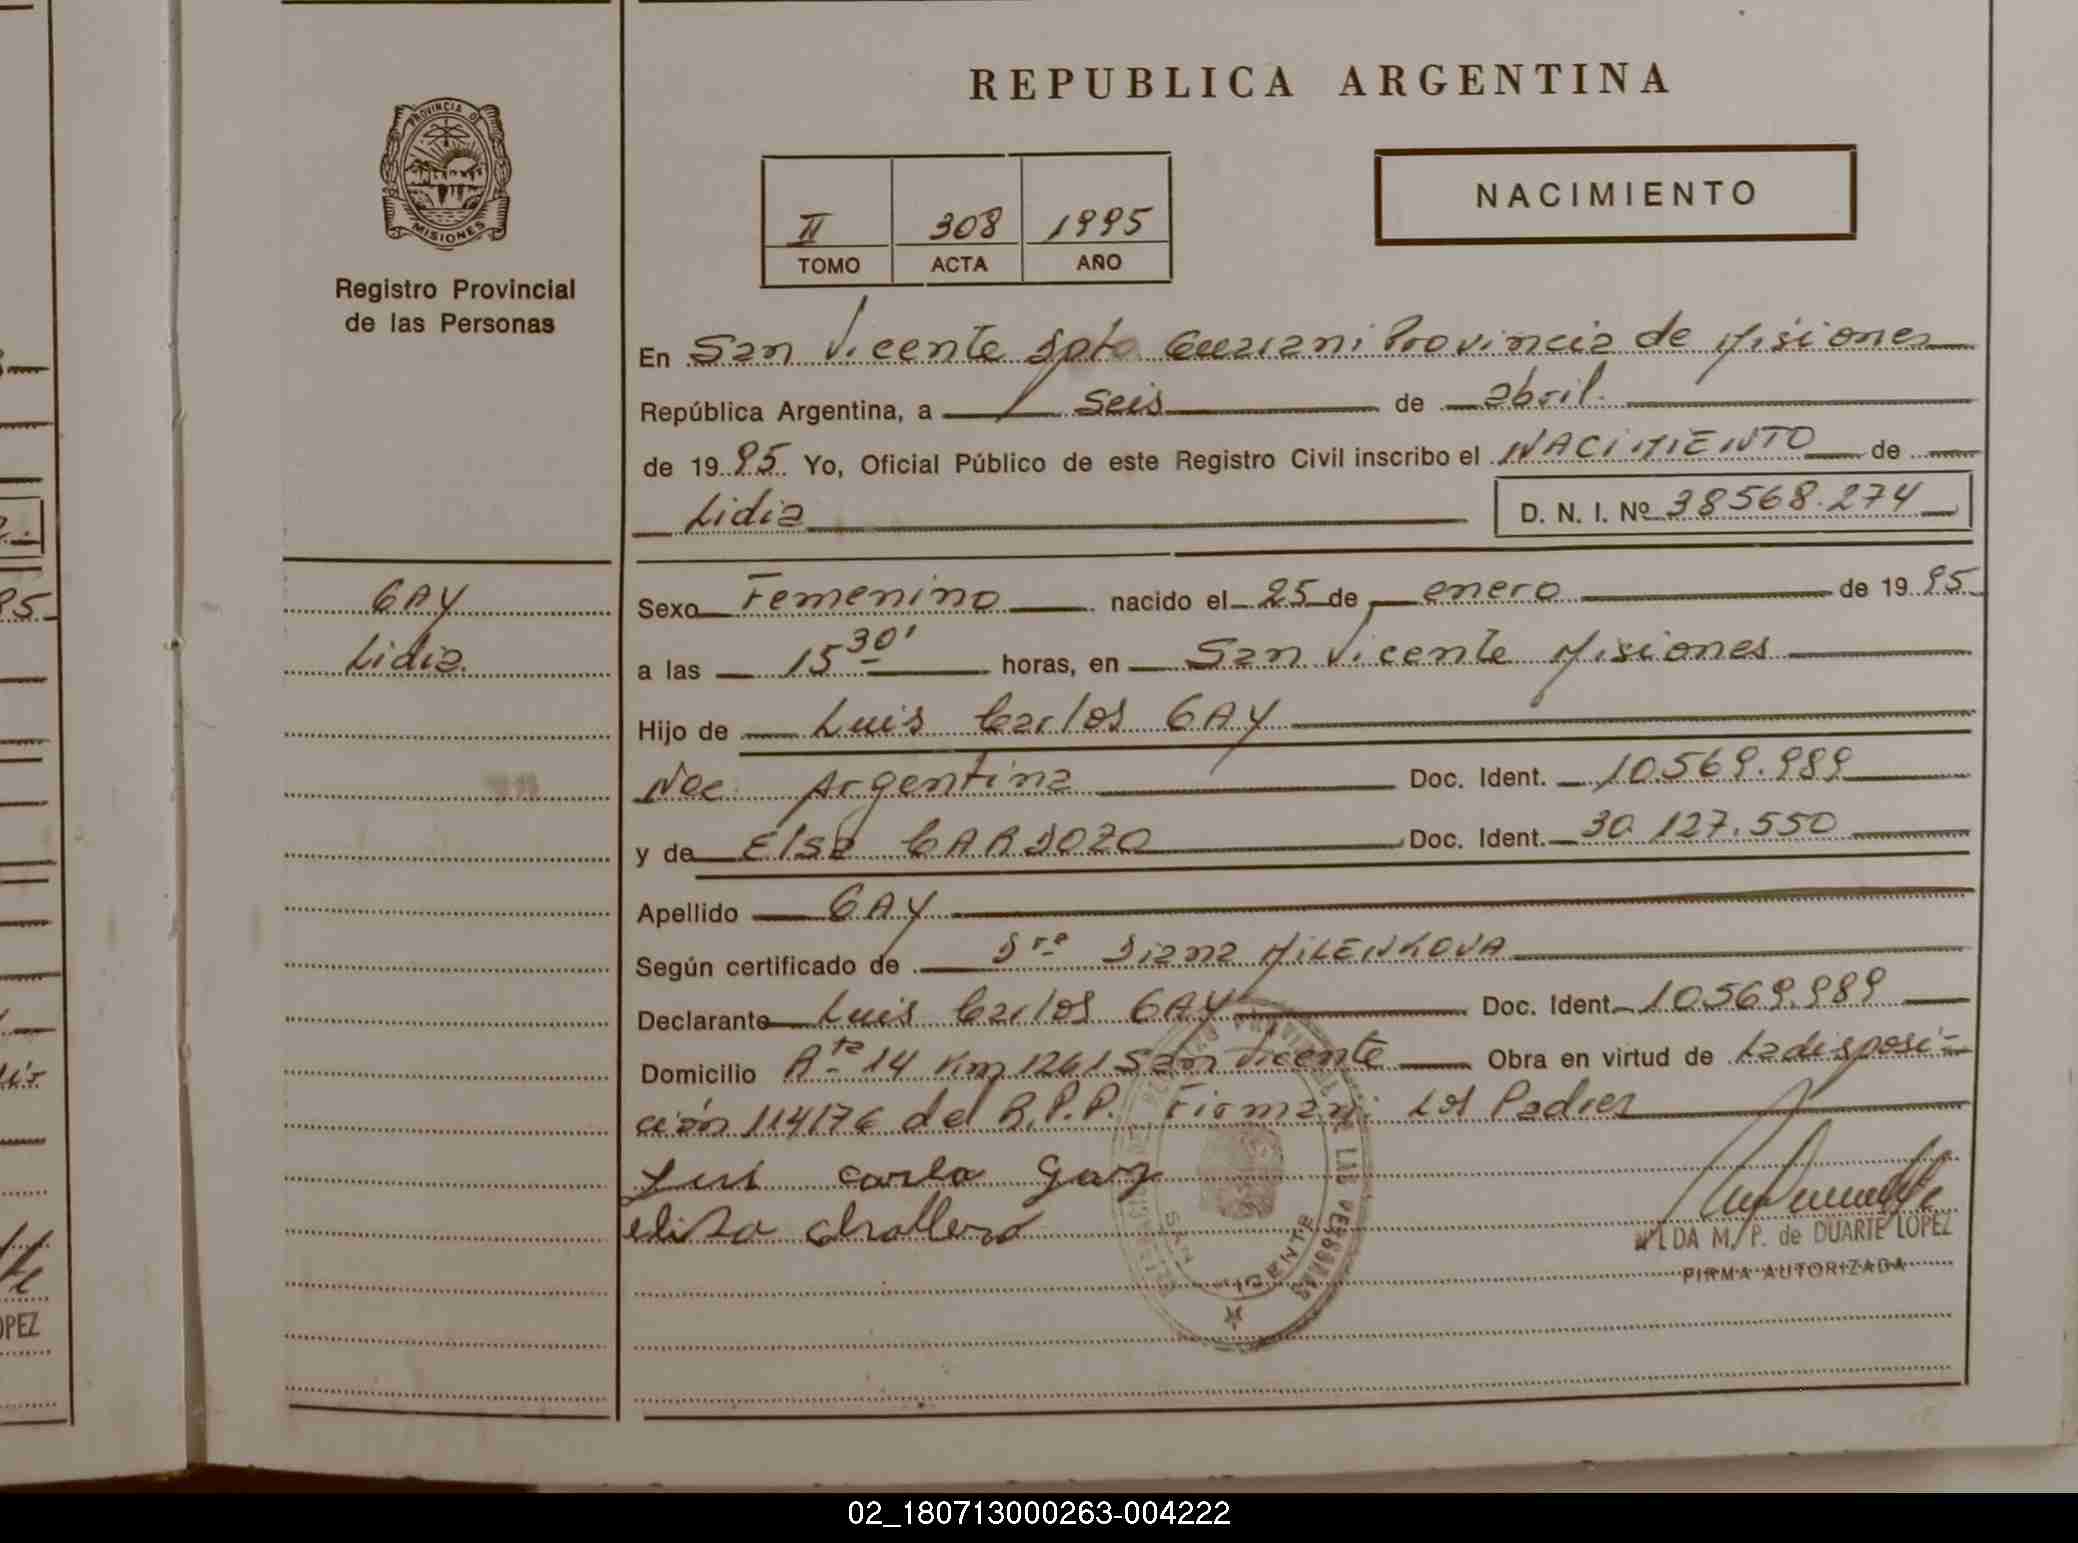 REPUBLICA ARGENTINA
PROVINCIA DE
MISIONES
Registro Provincial
de las Personas
NACIMIENTO
II 308 1995
TOMO ACTA AÑO
En San Vicente Dpto Guarani Provincia de Misiones
República Argentina, a seis de abril.
de 1995. Yo, Oficial Público de este Registro Civil inscribo el NACIMIENTO de
Lidia D. N. I. Nº 38568.274
GAY
Lidia.
Sexo Femenino nacido el 25 de enero de 1995
a las 15 30' horas, en San Vicente Misiones
Hijo de Luis Carlos GAY
Nac. Argentina Doc. Ident. 10.569.989
y de Elsa CARDOZO Doc. Ident. 30.127.550
Apellido GAY
Según certificado de Dra Diana MILENKOVA
Declarante Luis Carlos GAY Doc. Ident. 10.569.989
Domicilio Rta 14 Km 1261 San Vicente Obra en virtud de La disposi-
ción 114176 del R.P.P. Firman: Los Padres
Luis carlo gay
LAS PERSONAS
SAN VICENTE
M. P. de DUARTE LOPEZ
FIRMA AUTORIZADA
OPEZ
02_180713000263-004222